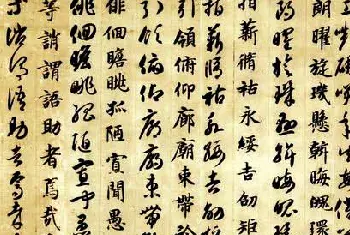 朗曜旋璣懸斡晦魄環
朗曜旋璣懸斡晦魄環
薪脩祜永綏吉劭矩
薪脩祜永綏吉劭矩
引領俯仰廊廟束帶矜
引領俯仰廊廟束帶
徘徊瞻眺孤陋寡聞愚
徊瞻眺孤陋寡聞愚
等誚謂語助者焉哉
等誚謂語助者焉